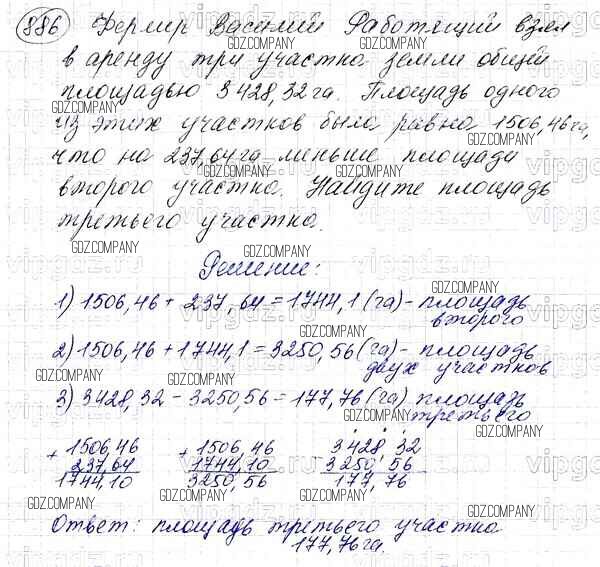 886 Фермер Василий Работящий взял
в аренду три участка земли общей
площадью 3428,32 га. Площадь одного
из этих участков была равна 1506,46 га,
что на 237,64 га меньше площади
второго участка. Найдите площадь
третьего участка.
Решение:
1) 1506,46 + 237,64 = 1744,1 (га) - площадь
второго
2) 1506,46 + 1744,1 = 3250,56 (га) - площадь
двух участков
3) 3428,32 - 3250,56 = 177,76 (га) площадь
третьего
+ 1506,46 + 1506,46 3428,32
237,64 1744,10 3250,56
1744,10 3250,56 177,76
Ответ: площадь третьего участка
177,76 га.
GDZ.COMPANY
vipgdz.ru